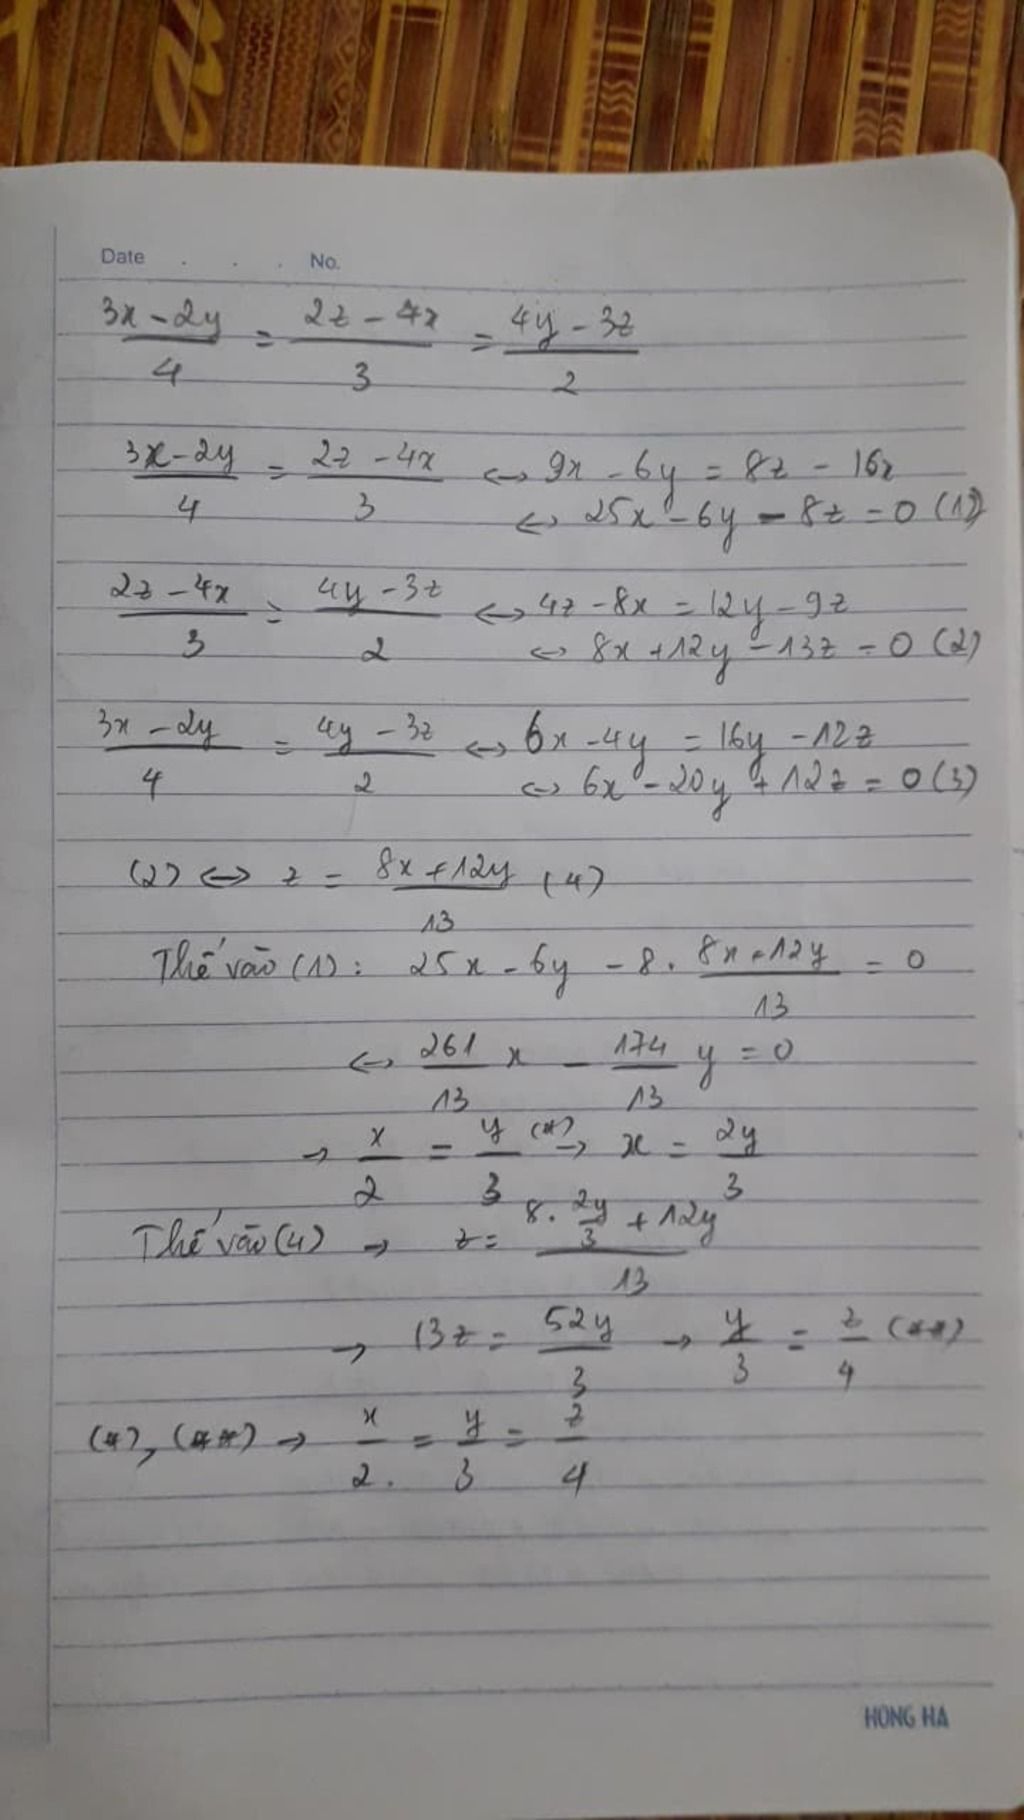 Date . . . No.
3x - 2y / 4 = 2z - 4x / 3 = 4y - 3z / 2
3x - 2y / 4 = 2z - 4x / 3 <-> 9x - 6y = 8z - 16x
<-> 25x - 6y - 8z = 0 (1)
2z - 4x / 3 = 4y - 3z / 2 <-> 4z - 8x = 12y - 9z
<-> 8x + 12y - 13z = 0 (2)
3x - 2y / 4 = 4y - 3z / 2 <-> 6x - 4y = 16y - 12z
<-> 6x - 20y + 12z = 0 (3)
(2) <-> z = 8x + 12y / 13 (4)
Thế vào (1): 25x - 6y - 8. 8x + 12y / 13 = 0
<-> 261/13 x - 174/13 y = 0
-> x/2 = y/3 (*) -> x = 2y/3
Thế vào (4) -> z = 8. 2y/3 + 12y / 13
-> 13z = 52y/3 -> y/3 = z/4 (**)
(*), (**) -> x/2. = y/3 = z/4
HỒNG HÀ